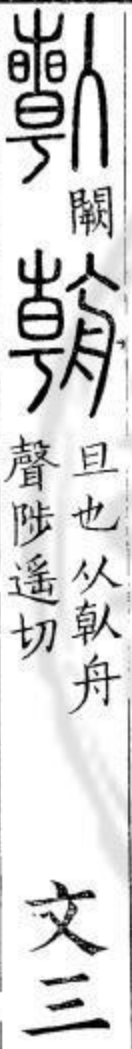 闕
朝
旦也从倝舟
聲陟遥切
文三